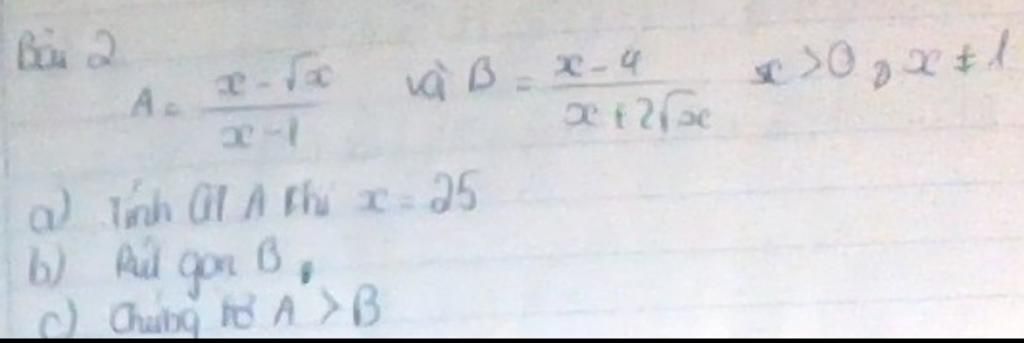 Bài 2
A = \frac{x - \sqrt{x}}{x - 1} và B = \frac{x - 4}{x + 2\sqrt{x}} x > 0, x ≠ 1
a) Tính GT A khi x = 25
b) Rút gọn B.
c) Chứng tỏ A > B